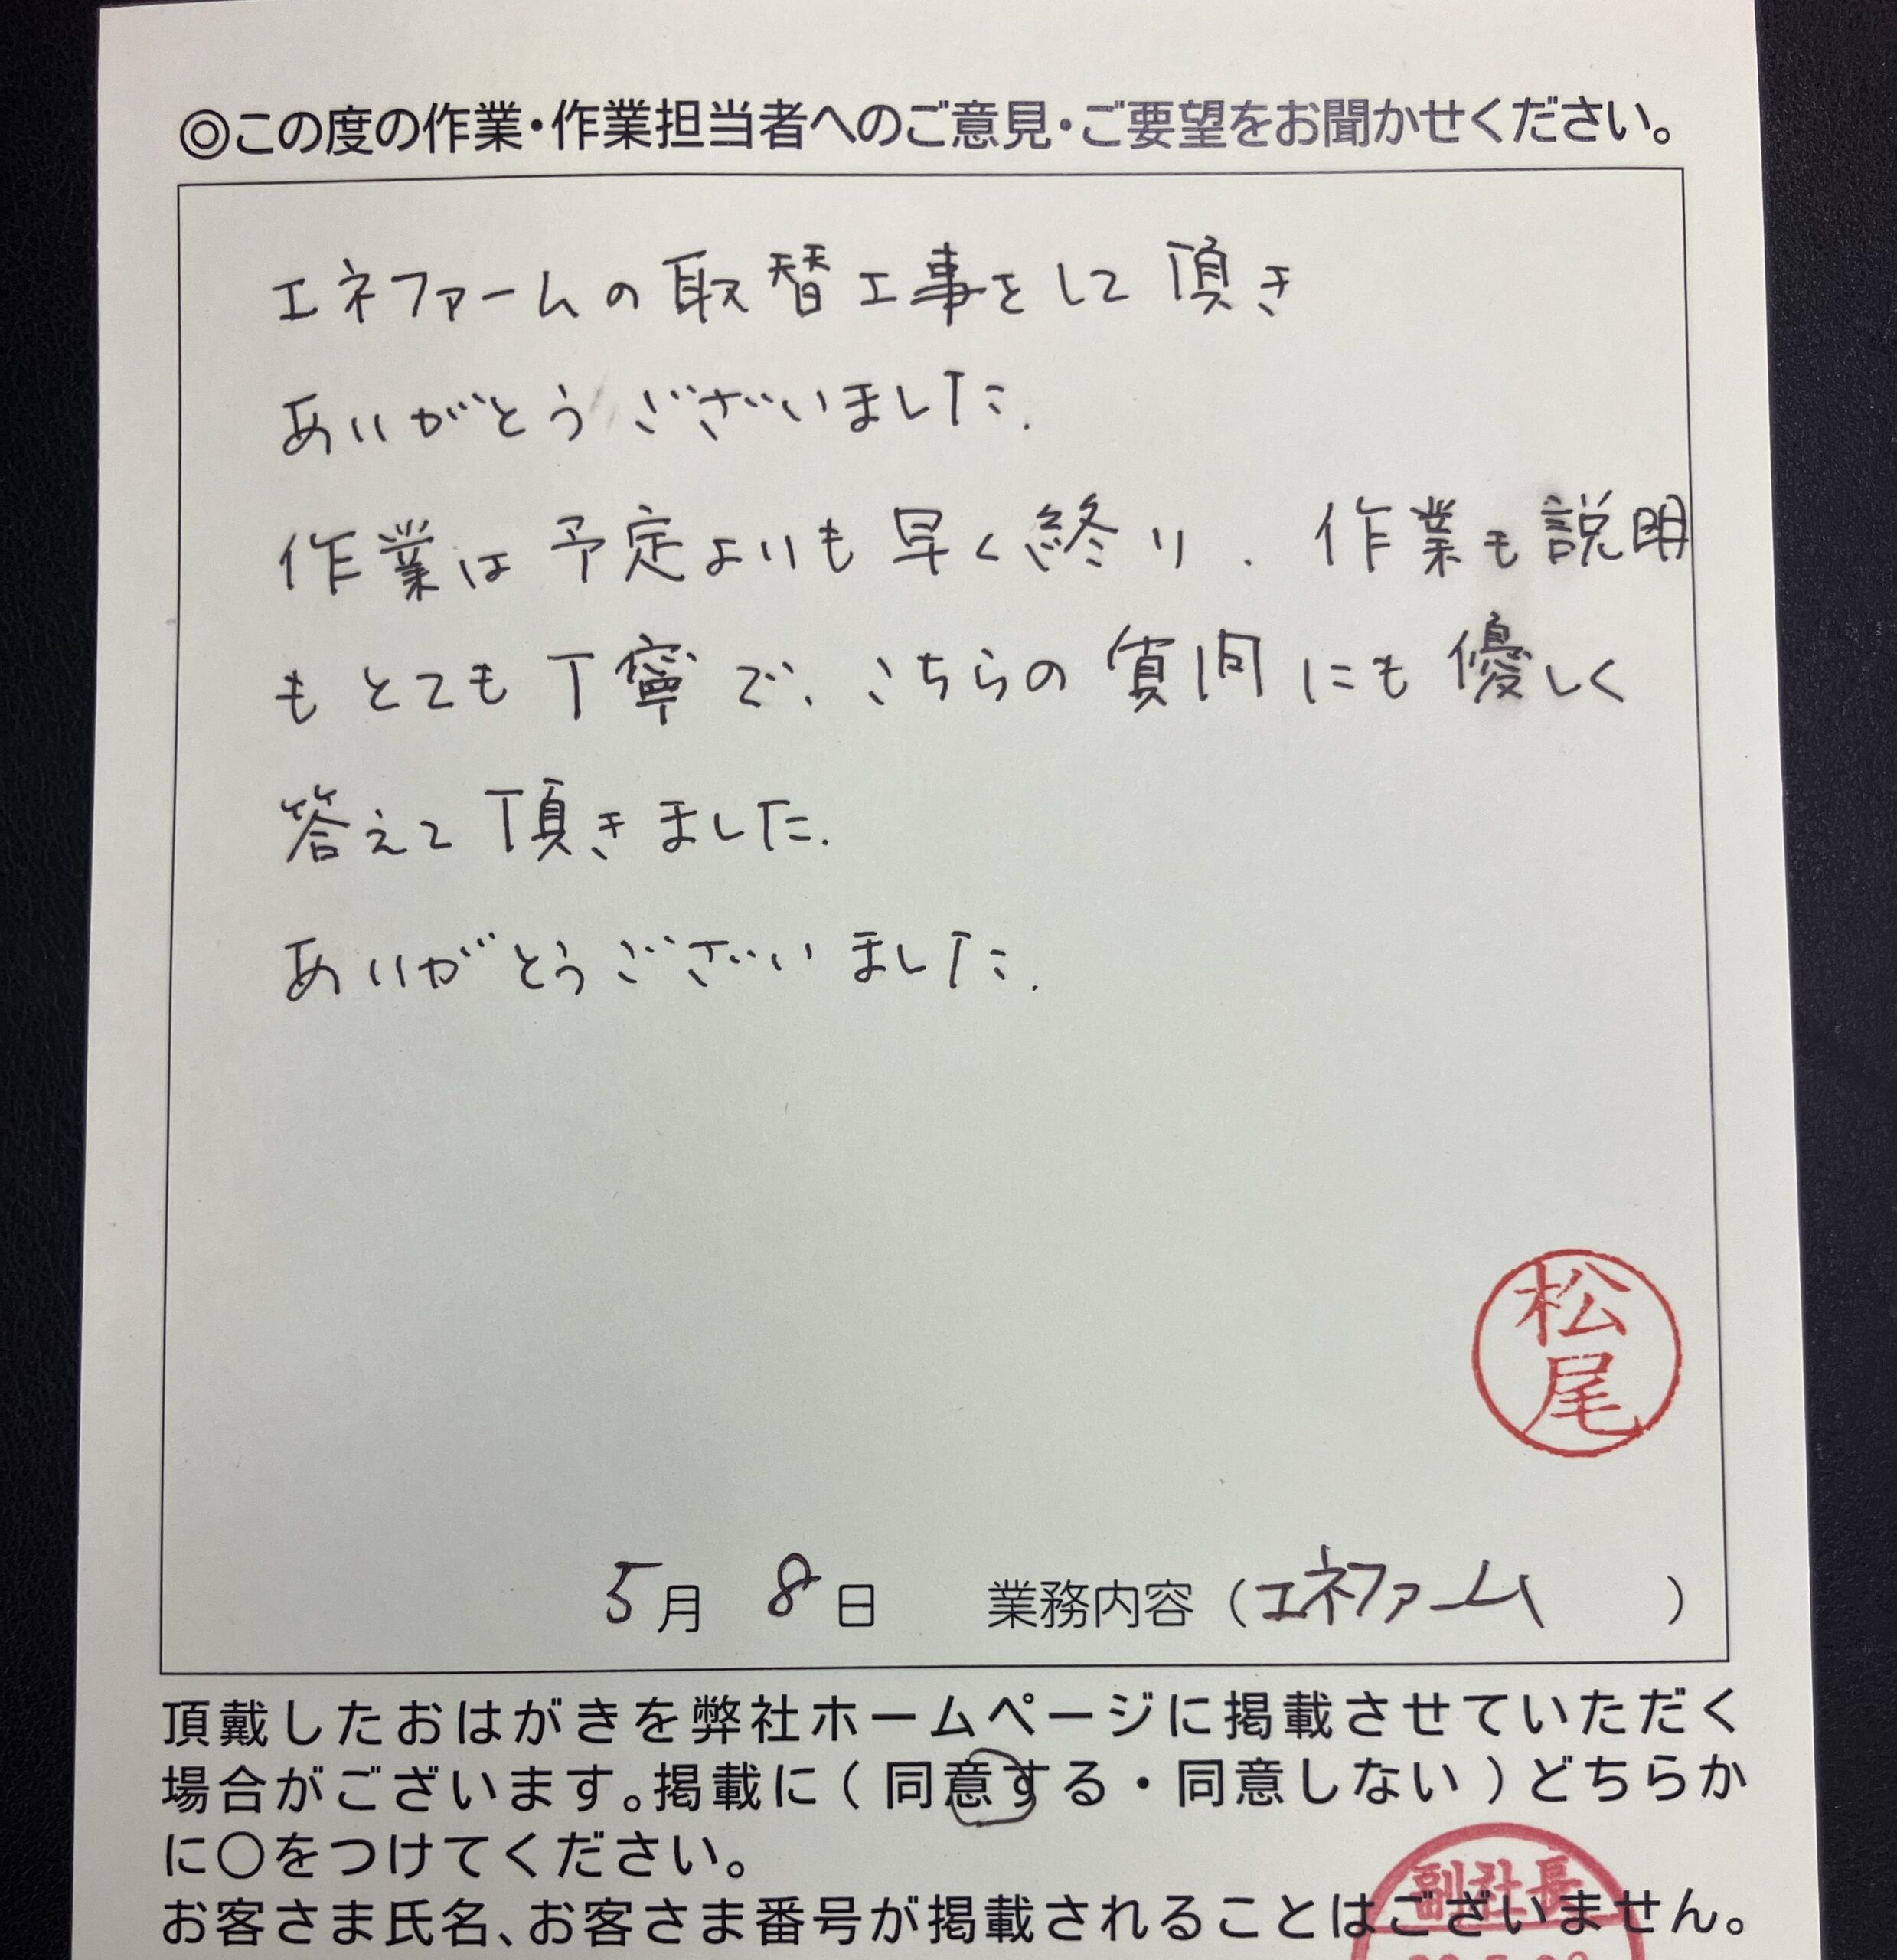 ◎この度の作業・作業担当者へのご意見・ご要望をお聞かせください。
エネファームの取替工事をして頂き
ありがとうございました.
作業は予定よりも早く終り、作業も説明
もとても丁寧で、こちらの質問にも優しく
答えて頂きました.
ありがとうございました.
松尾
5月 8日 業務内容（エネファーム ）
頂戴したおはがきを弊社ホームページに掲載させていただく
場合がございます。掲載に（同意する・同意しない）どちらか
に○をつけてください。
お客さま氏名、お客さま番号が掲載されることはございません。
副社長